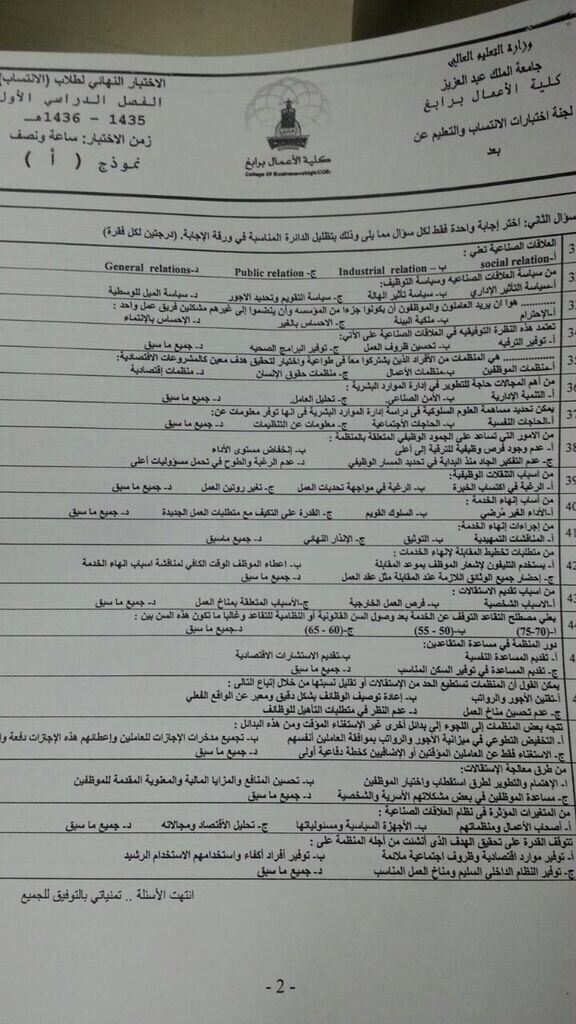 وزارة التعليم العالي
جامعة الملك عبد العزيز
كلية الأعمال برابغ
لجنة اختبارات الانتساب والتعليم عن
بعد
كلية الأعمال برابغ
College Of Business-rabigh(COB)
الاختبار النهائي لطلاب (الانتساب)
الفصل الدراسي الأول
1435 - 1436هـ
زمن الاختبار: ساعة ونصف
نموذج ( أ )
سؤال الثاني: اختر إجابة واحدة فقط لكل سؤال مما يلي وذلك بتظليل الدائرة المناسبة في ورقة الإجابة. (درجتين لكل فقرة)
العلاقات الصناعية تعني :
أ-social relation ب – Industrial relation ج- Public relation د-General relations
من سياسة العلاقات الصناعيه وسياسة التوظيف:
أ-سياسة التأثير الإداري ب- سياسة تأثير الهالة ج- سياسة التقويم وتحديد الاجور د- سياسة الميل للوسطية
............ هوا ان يريد العاملون والموظفون أن يكونوا جزءا من المؤسسه وأن يتضموا إلى غيرهم مشكلين فريق عمل واحد :
أ-الإحترام ب- ملكية البيئة ج- الاحساس بالغير د- الإحساس بالإنتماء
34 تعتمد هذه النظرة التوفيقيه في العلاقات الصناعية على الآتي:
أ- توفير الترفيه ب- تحسين ظروف العمل ج- توفير البرامج الصحيه د- جميع ما سبق
35 ................ هي المنظمات من الأفراد الذين يشتركوا معاً فى طواعية واختيار لتحقيق هدف معين كالمشروعات الاقتصادية:
أ-منظمات الموظفين ب-منظمات الأعمال ج- منظمات حقوق الإنسان د- منظمات إقتصادية
36 من أهم المجالات حاجة للتطوير في إدارة الموارد البشرية :
أ- التنمية الإدارية ب- الأمن الصناعي. ج- تحليل العامل. د- جميع ما سبق
37 يمكن تحديد مساهمة العلوم السلوكية فى دراسة إدارة الموارد البشرية فى انها توفر معلومات عن:
أ-الحاجات النفسية ب- الحاجات الأجتماعية ج- معلومات عن التنظيمات د- جميع ما سبق
38 من الامور التي تساعد على الجمود الوظيفي المتعلقة بالمنظمة :
أ- عدم وجود فرص وظيفية للترقية إلى أعلى ب- إنخفاض مستوى الأداء
ج- عدم التفكير الجاد منذ البداية في تحديد المسار الوظيفي د- عدم الرغبة والطوح في تحمل مسؤوليات أعلى
39 من اسباب التنقلات الوظيفية:
أ- الرغبة في اكتساب الخبرة ب- الرغبة في مواجهة تحديات العمل ج- تغير روتين العمل د- جميع ما سبق
40 من أساب إنهاء الخدمة :
أ-الأداء الغير مُرضي ب- السلوك القويم ج- القدرة على التكيف مع متطلبات العمل الجديدة د- جميع ما سبق
41 من إجراءات إنهاء الخدمة:
أ- المناقشات التمهيدية ب- التوثيق ج- الإنذار النهائي د- جميع ماسبق
42 من متطلبات تخطيط المقابلة لإنهاء الخدمات :
أ- يستخدم التليفون لإشعار الموظف بموعد المقابلة ب- اعطاء الموظف الوقت الكافي لمناقشة اسباب انهاء الخدمة
ج- إحضار جميع الوثائق اللازمة عند المقابلة مثل عقد العمل د- جميع ما سبق
من اسباب تقديم الاستقالات :
أ-الاسباب الشخصية ب- فرص العمل الخارجية ج-الأسباب المتعلقة بمناخ العمل د- جميع ما سبق
44 يعني مصطلح التقاعد التوقف عن الخدمة بعد وصول السن القانونية أو النظامية للتقاعد وغالبا ما تكون هذه السن بين :
ا-(70-75) ب-(50 - 55) ج-(60 - 65) د-جميع ما سبق
دور المنظمة في مساعدة المتقاعدين:
أ- تقديم المساعدة النفسية ب-تقديم الاستشارات الاقتصادية
ج- تقديم المساعدة في توفير السكن المناسب د- جميع ما سبق
يمكن القول أن المنظمات تستطيع الحد من الإستقالات أو تقليل نسبتها من خلال إتباع التالي :
أ-تقنين الأجور والرواتب ب- إعادة توصيف الوظائف بشكل دقيق ومعبر عن الواقع الفعلي
ج- عدم تحسين مناخ العمل د- عدم النظر في متطلبات التأهيل للوظائف
تتجه بعض المنظمات إلى اللجوء إلى بدائل أخرى غير الإستغناء المؤقت ومن هذه البدائل :
أ- التخفيض التطوعي في ميزانية الأجور والرواتب بموافقة العاملين أنفسهم ب- تجميع مدخرات الإجازات للعاملين وإعطائهم هذه الإجازات دفعة
ج- الاستغناء فقط عن العاملين المؤقتين أو الإضافيين كخطة دفاعية أولى د- جميع ما سبق
من طرق معالجة الإستقالات:
ا- الإهتمام والتطوير لطرق استقطاب واختيار الموظفين ب- تحسين المنافع والمزايا المالية والمعنوية المقدمة للموظفين
ج- مساعدة الموظفين في بعض مشكلاتهم الأسرية والشخصية د- جميع ما سبق
من المتغيرات المؤثرة فى نظام العلاقات الصناعية :
أ- أصحاب الأعمال ومنظماتهم ب- الأجهزة السياسية ومسئولياتها ج- تحليل الأقتصاد ومجالاته د- جميع ما سبق
تتوقف القدرة على تحقيق الهدف الذى أنشئت من أجله المنظمة على :
أ- توفير موارد اقتصادية وظروف اجتماعية ملائمة ب- توفير أفراد أكفاء واستخدامهم الاستخدام الرشيد
ج- توفير النظام الداخلى السليم ومناخ العمل المناسب د- جميع ما سبق
انتهت الأسئلة .. تمنياتي بالتوفيق للجميع
- 2 -